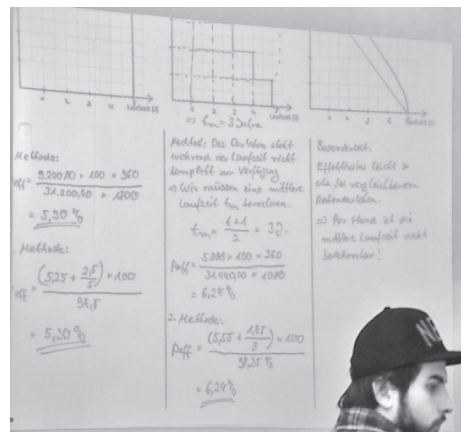 1 2 3 4 5 Laufzeit (J)
Methode:
eff = 9.200,00 × 100 × 360
31.200,00 × 1800
= 5,90 %
. Methode:
eff = (5,25 + 2,5/5) × 100
97,5
= 5,90 %
1 2 3 4 5 Laufzeit (J)
⇒ tm = 3 Jahre
Nachteil: Das Darlehen steht
während der Laufzeit nicht
komplett zur Verfügung
⇒ Wir müssen eine mittlere
Laufzeit tm berechnen.
tm = t+1/2 = 3J.
Peff = × 100 × 360
× 1080
= 6,24 %
2. Methode:
Peff = (5,55 + 1,75/3) × 100
98,25 %
= 6,24 %
1 2 3 4 5 Laufzeit (J)
Besonderheit:
Effektivzins leicht >
als bei vergleichbarem
Ratendarlehen.
⇒ Per Hand ist die
mittlere Laufzeit nicht
berechenbar!
NE